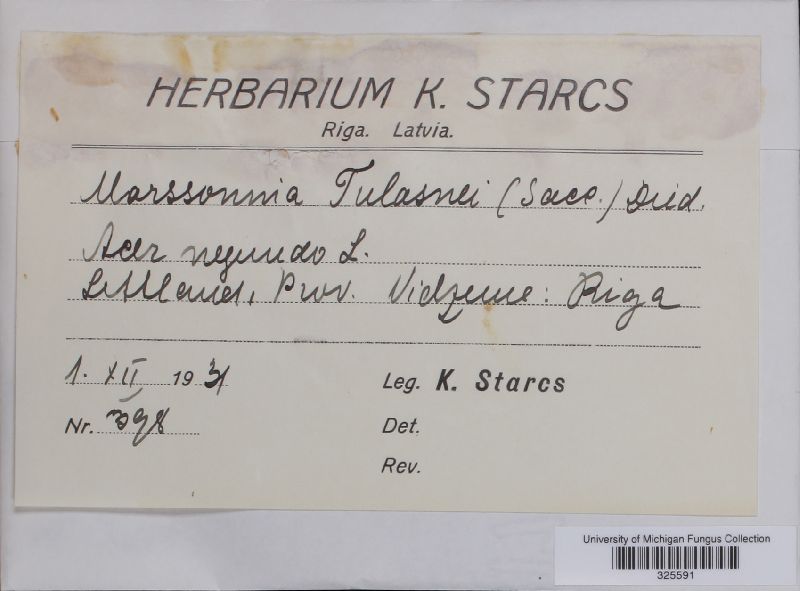 HERBARIUM K. STARCS
Riga. Latvia.
Marssonnia Tulasnei (Sacc.) Died.
Acer negundo L.
Lettland, Prov. Vidzeme: Riga
1. XII 1931
Leg. K. Starcs
Nr. 398
Det.
Rev.
University of Michigan Fungus Collection
325591